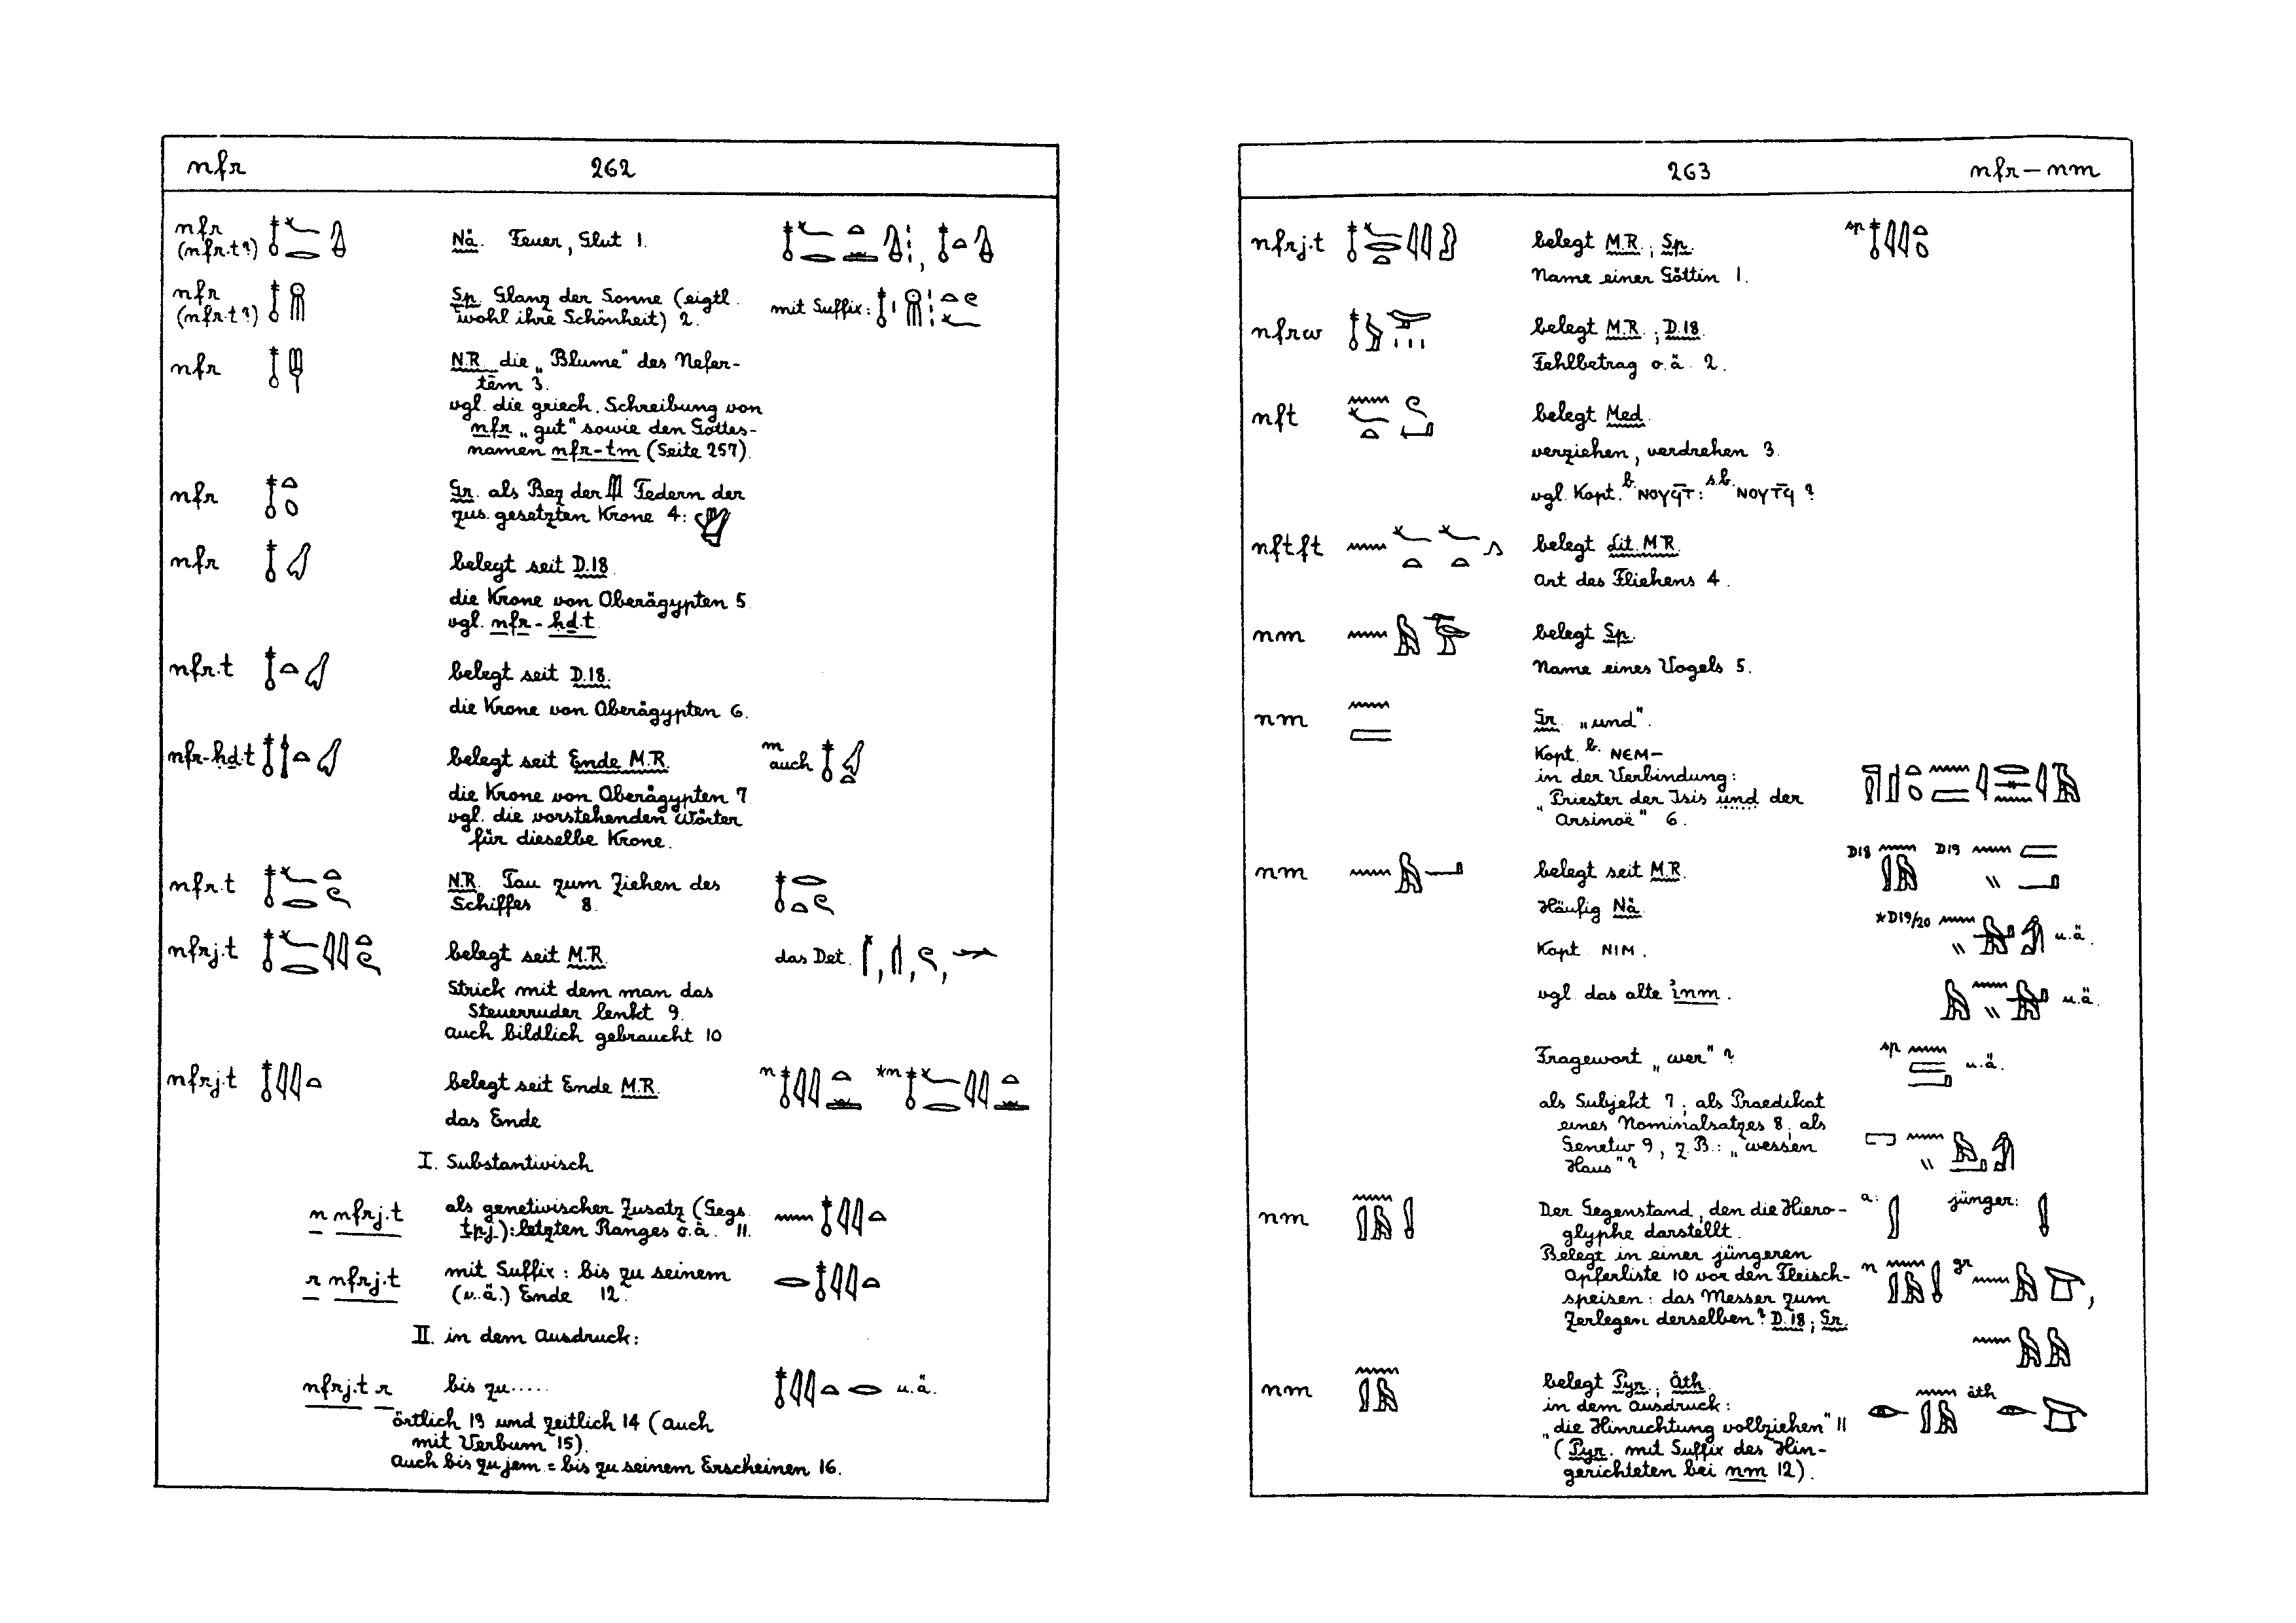 nfr 262
nfr
(nfr.t?)
Nä. Feuer, Glut 1.
nfr
(nfr.t?)
Sp. Glanz der Sonne (eigtl.
wohl ihre Schönheit) 2.
mit Suffix:
nfr
N.R. die „Blume" des Nefer-
têm 3.
vgl. die griech. Schreibung von
nfr „gut" sowie den Gottes-
namen nfr-tm (Seite 257).
nfr
Gr. als Bez der Federn der
zus. gesetzten Krone 4:
nfr
belegt seit D.18.
die Krone von Oberägypten 5.
vgl. nfr-ḥḏ.t.
nfr.t
belegt seit D.18.
die Krone von Oberägypten 6.
nfr-ḥḏ.t
belegt seit Ende M.R.
m
auch
die Krone von Oberägypten 7.
vgl. die vorstehenden Wörter
für dieselbe Krone.
nfr.t
N.R. Tau zum Ziehen des
Schiffes 8.
nfrj.t
belegt seit M.R.
das Det.
Strick mit dem man das
Steuerruder lenkt 9.
auch bildlich gebraucht 10
nfrj.t
belegt seit Ende M.R.
n *n
das Ende
I. Substantivisch
n nfrj.t
als genetivischer Zusatz (Gegs.
tpj): letzten Ranges o.ä. 11.
r nfrj.t
mit Suffix: bis zu seinem
(u.ä.) Ende 12.
II. in dem Ausdruck:
nfrj.t r bis zu..... u.ä.
örtlich 13 und zeitlich 14 (auch
mit Verbum 15).
auch bis zu jem = bis zu seinem Erscheinen 16.
263 nfr – nm
nfrj.t
belegt M.R.; Sp.
sp
Name einer Göttin 1.
nfrw
belegt M.R.; D.18.
Fehlbetrag o.ä. 2.
nft
belegt Med.
verziehen, verdrehen 3.
vgl. Kopt. b. ⲛⲟⲩϥⲧ: s.b. ⲛⲟⲩⲧϥ ?
nftft
belegt Lit. M.R.
Art des Fliehens 4.
nm
belegt Sp.
Name eines Vogels 5.
nm
Gr. „und".
Kopt. b. ⲛⲉⲙ–
in der Verbindung:
„Priester der Isis und der
Arsinoë" 6.
nm
belegt seit M.R.
D18 D19
Häufig Nä.
*D19/20 u.ä.
Kopt ⲛⲓⲙ.
vgl. das alte inm.
u.ä.
Fragewort „wer"?
sp u.ä.
als Subjekt 7; als Praedikat
eines Nominalsatzes 8; als
Genetiv 9, z.B.: „wessen
Haus"?
nm
Der Gegenstand, den die Hiero-
glyphe darstellt.
a: jünger:
Belegt in einer jüngeren
Opferliste 10 vor den Fleisch-
speisen: das Messer zum
Zerlegen derselben? D.18; Gr.
n gr
nm
belegt Pyr.; Äth.
in dem Ausdruck:
„die Hinrichtung vollziehen" 11
(Pyr. mit Suffix des Hin-
gerichteten bei nm 12).
äth